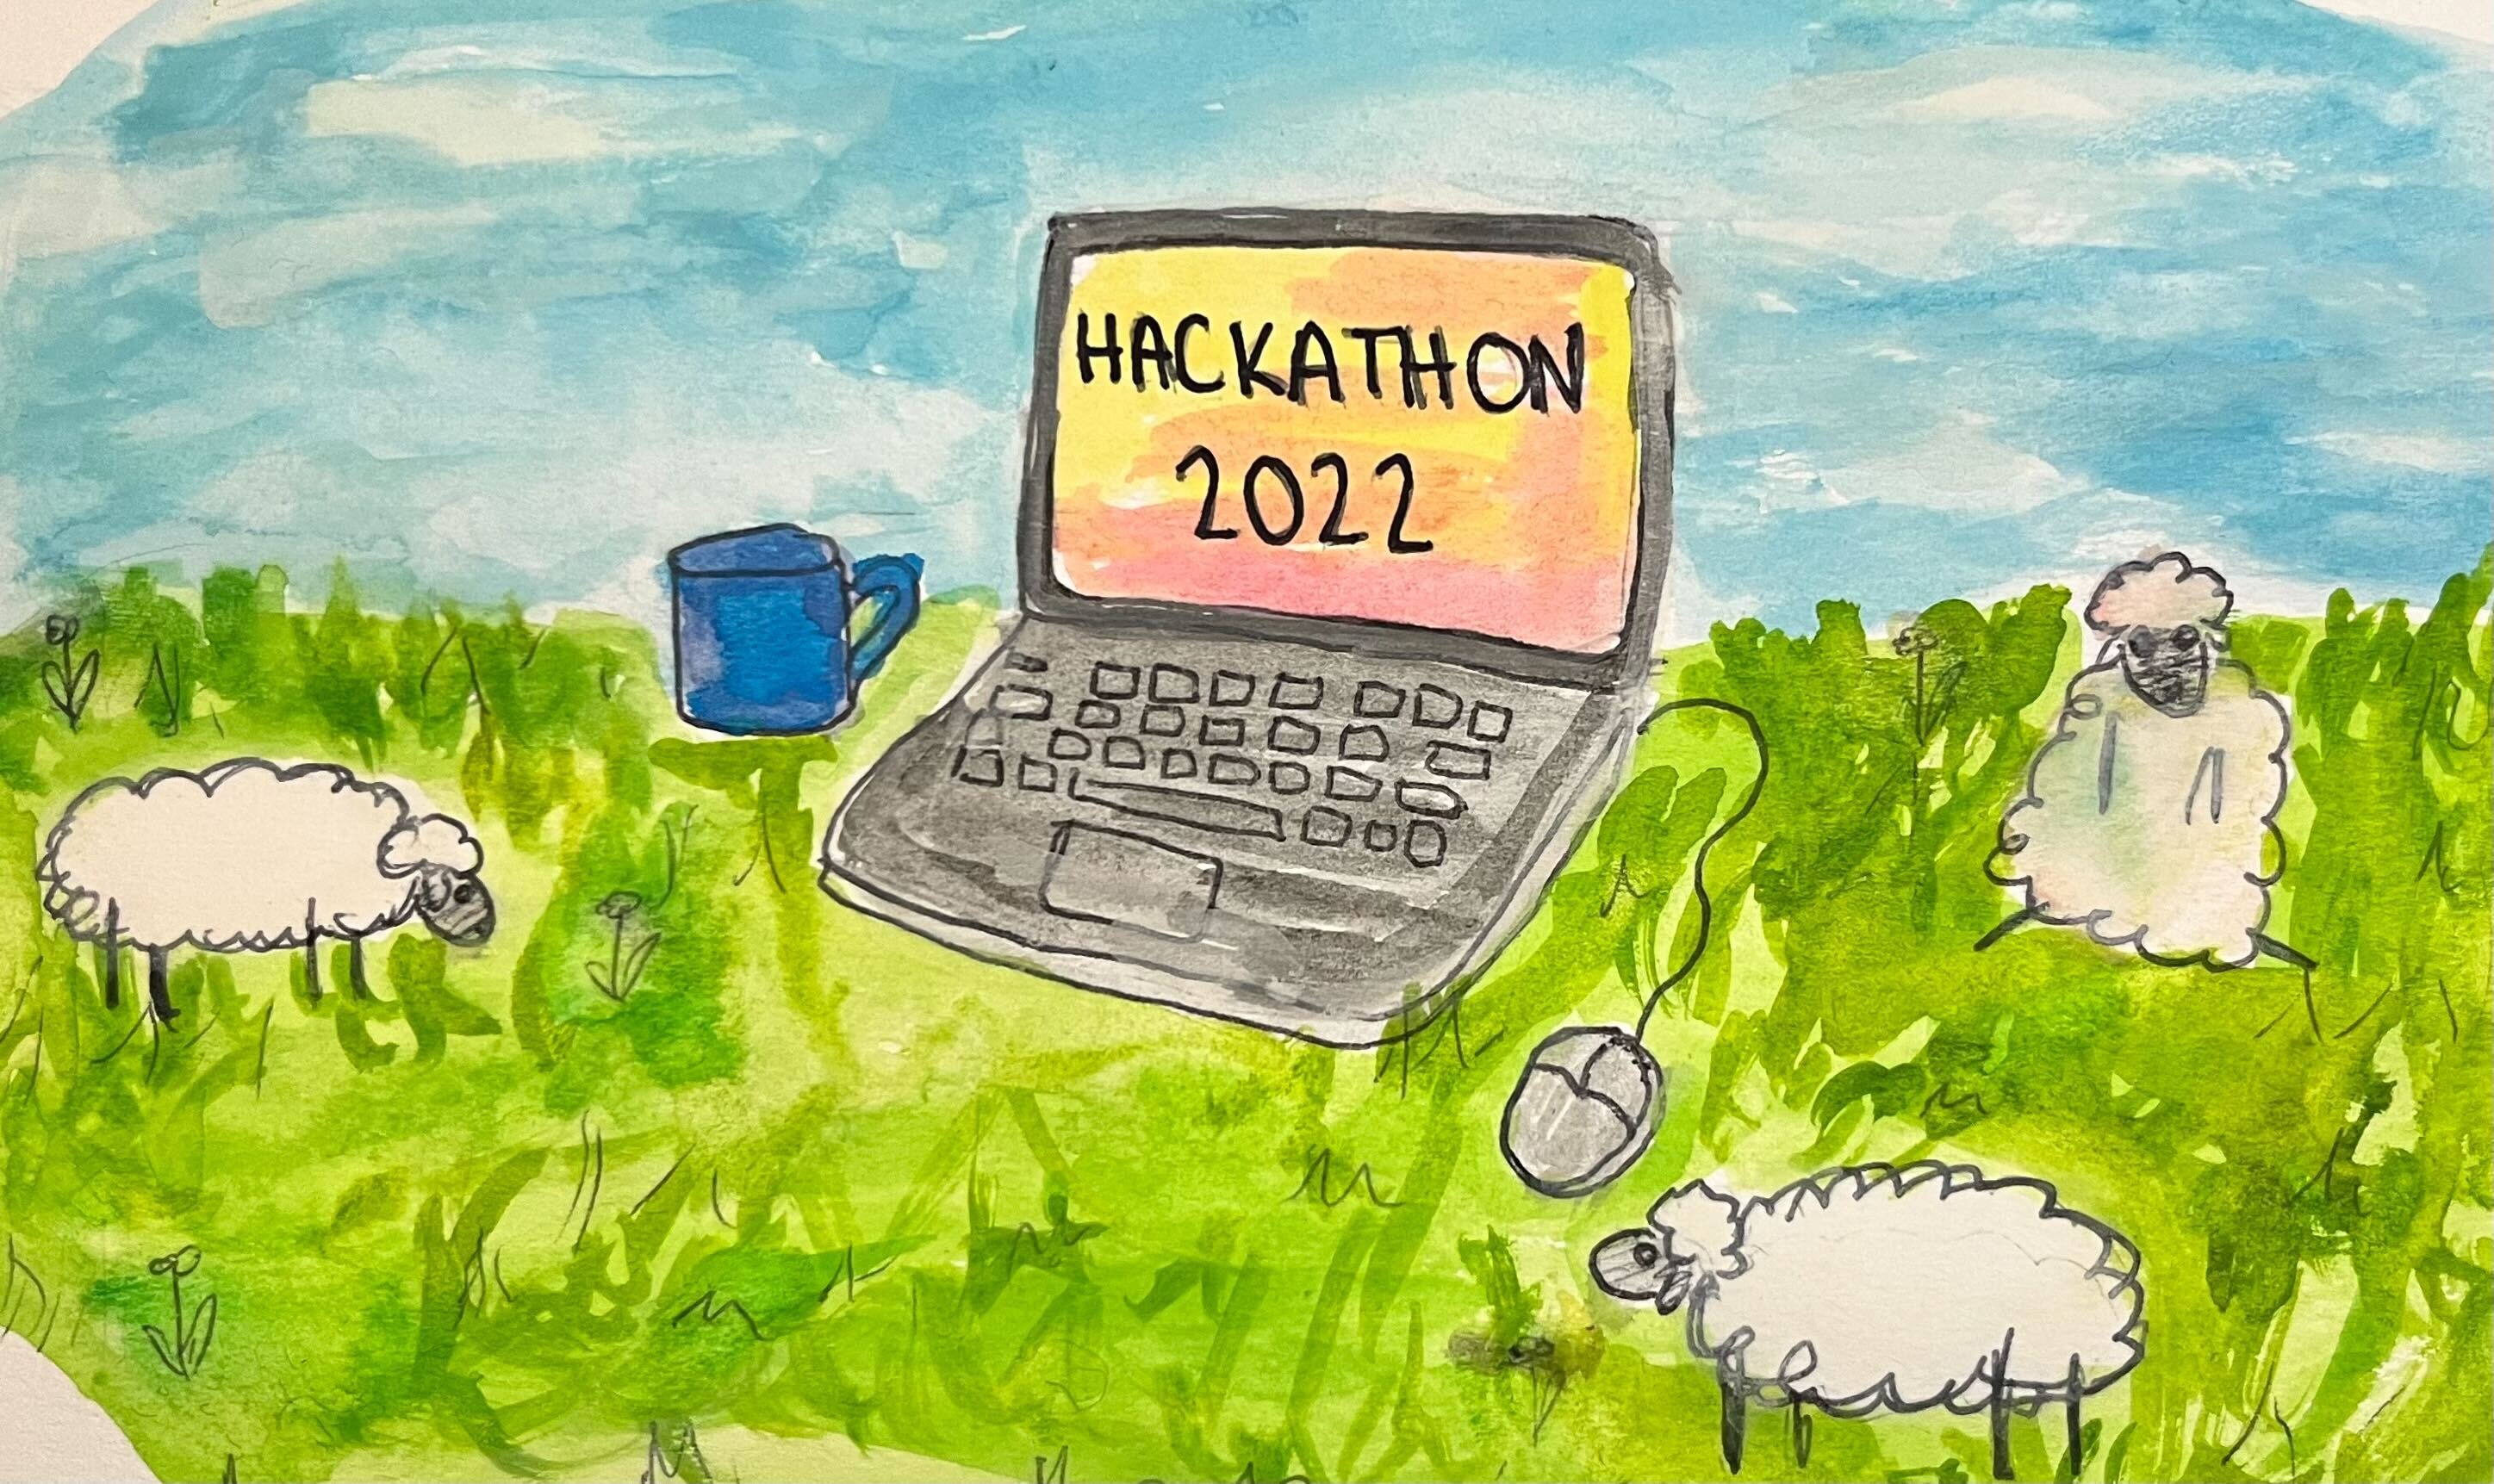 HACKATHON
2022